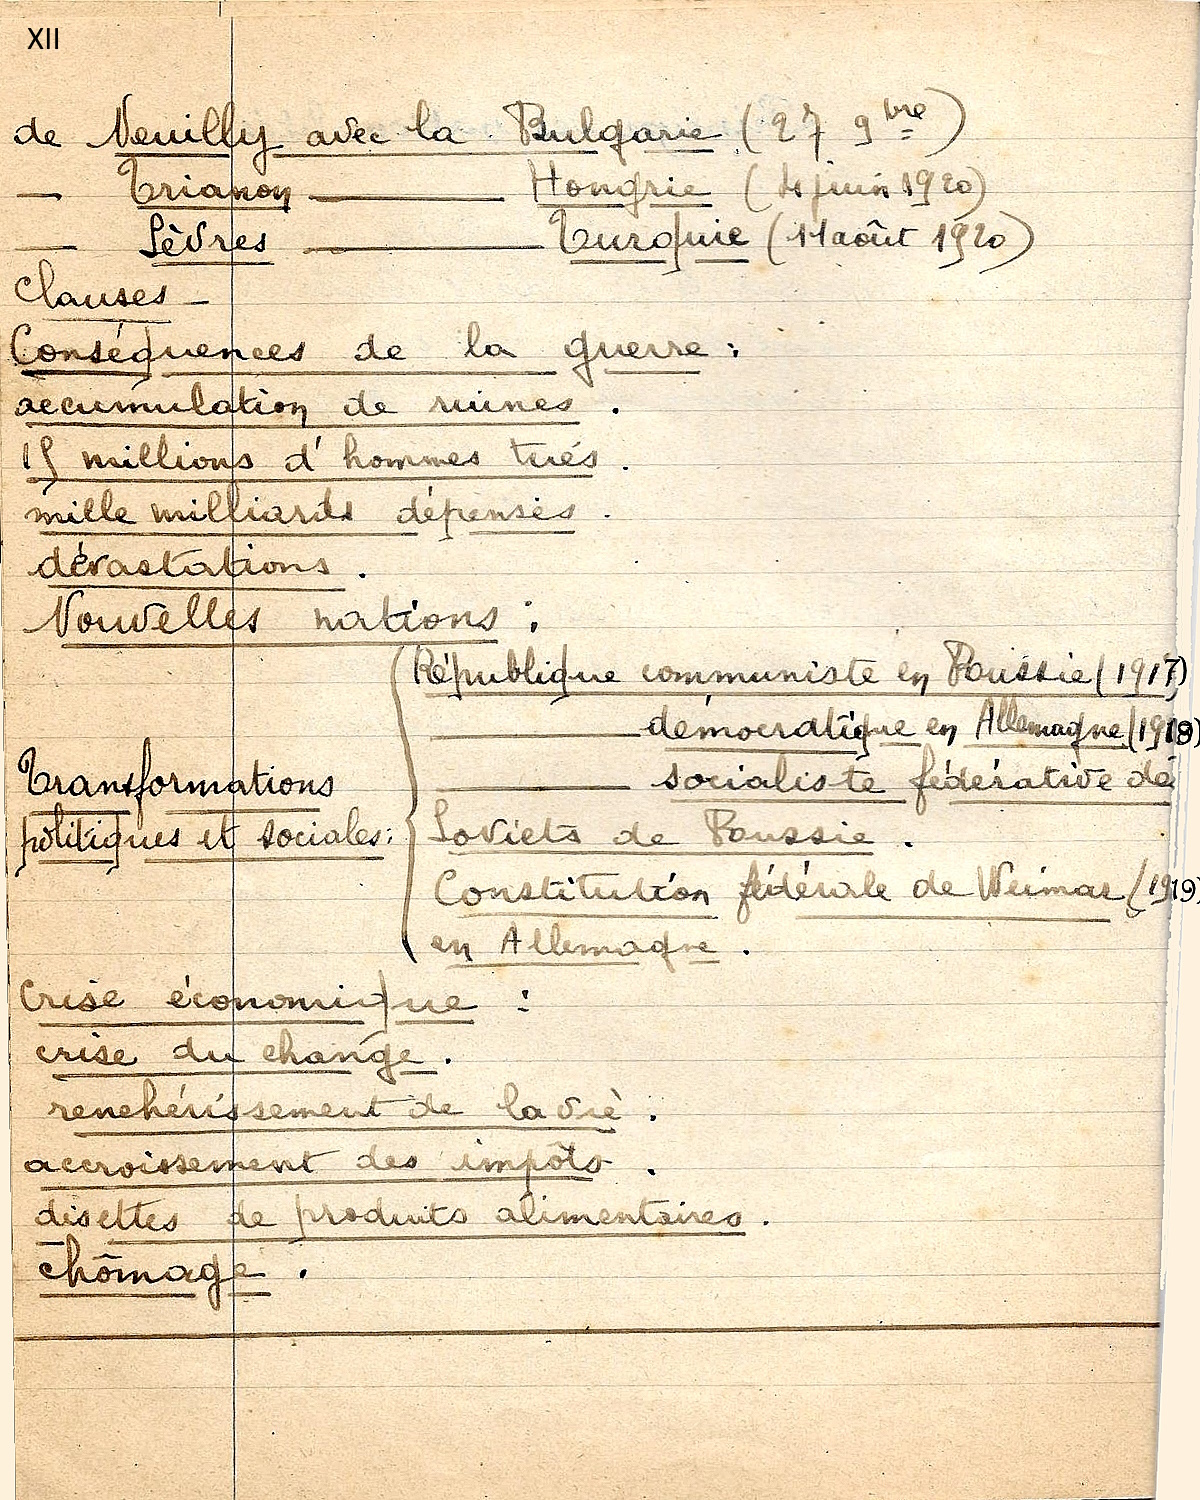 XII
de Neuilly avec la Bulgarie (27 9bre)
— Trianon — Hongrie (4 juin 1920)
— Sèvres — Turquie (11 août 1920)
Clauses –
Conséquences de la guerre :
accumulation de ruines .
15 millions d'hommes tués .
mille milliards dépensés .
dévastations .
Nouvelles nations :
République communiste en Roussie (1917)
— démocratique en Allemagne (1918)
— socialiste fédérative de
Transformations
politiques et sociales :
Soviets de Roussie .
Constitution fédérale de Weimar (1919)
en Allemagne .
Crise économique :
crise du change .
renchérissement de la vie .
accroissement des impôts .
disettes de produits alimentaires .
chômage .